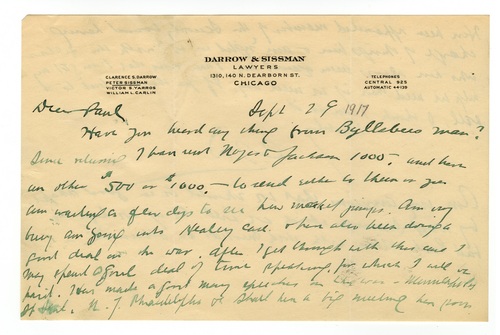 DARROW & SISSMAN
LAWYERS
1310, 140 N. DEARBORN ST.
CHICAGO
CLARENCE S. DARROW
PETER SISSMAN
VICTOR S. YARROS
WILLIAM L. CARLIN
TELEPHONES
CENTRAL 925
AUTOMATIC 44139
Sept 29 1917
Dear Paul
Have you heard any thing from Byllesbees man?
Since returning I have sent Jackson 1000.- and have
an other $500 or $1000.- to send either to them or you
am waiting a few days to see how market jumps. Am very
busy am going into Healey case. Have also been doing a
good deal on the war. After I get through with this case I
may spend a good deal of time speaking, for which I will be
paid. Have made a good many speeches on the war -
St Paul. N. J. Philadelphia &. Shall have a big meeting here soon